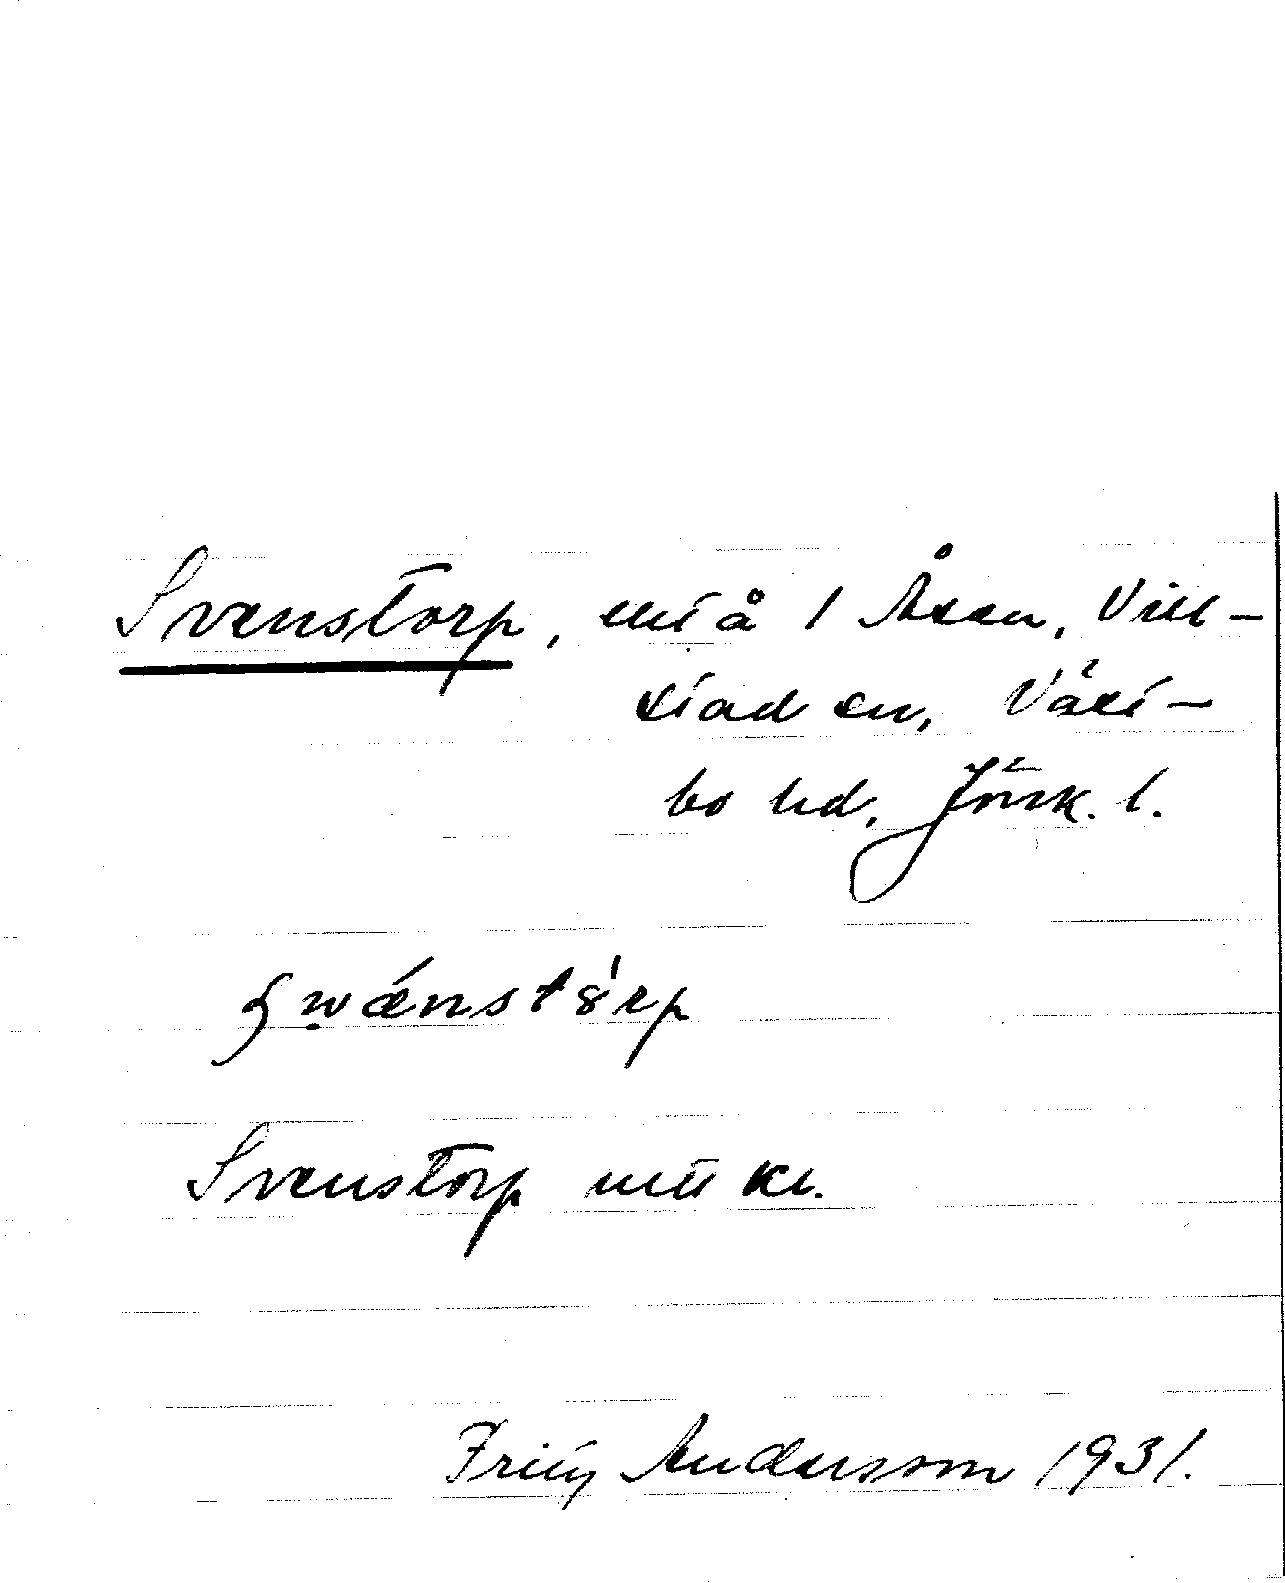 Svenstorp, utj å 1 Åsen, Vill-
stad sn, Väst-
bo hd, Jönk. l.
swǽnstȣ́rp
Svenstorp
Fritz Andersson 1931.